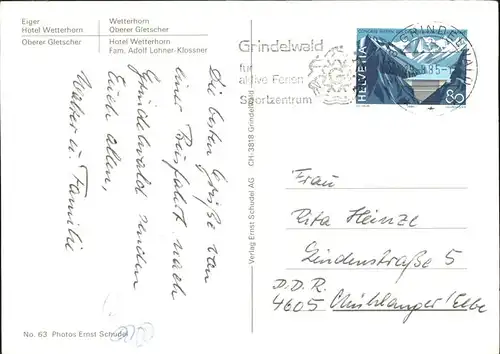 Eiger
Hotel Wetterhorn
Oberer Gletscher
Wetterhorn
Oberer Gletscher
Hotel Wetterhorn
Fam. Adolf Lohner-Klossner
Die besten Grüße von
einer Busfahrt nach
Grindelwald senden
Euch allen,
Walter u. Familie
No. 63 Photos Ernst Schudel
Verlag Ernst Schudel AG CH-3818 Grindelwald
Grindelwald
für
aktive Ferien
Sportzentrum
GRINDELWALD
HELVETIA
80
Frau
Rita Heinze
Lindenstraße 5
D.D.R.
4605 Mühlanger/Elbe